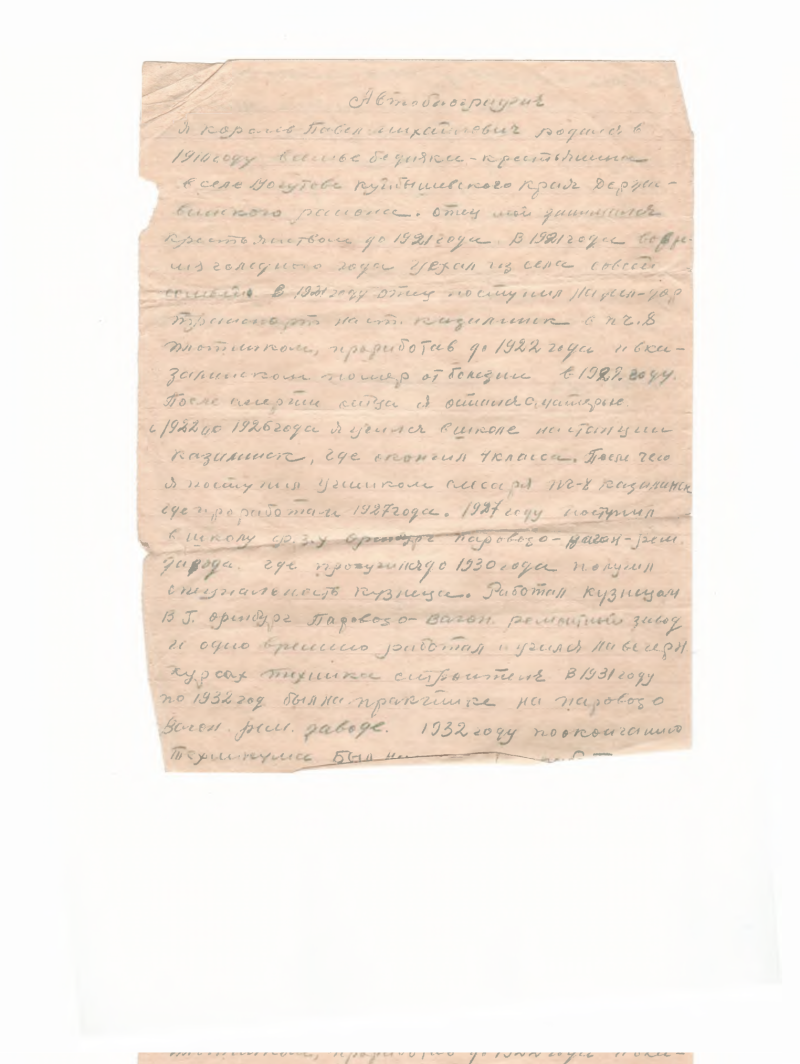 Автобиография
Я Королев Павел Михайлович родился в
1910 году в семье бедняка-крестьянина
в селе Могутова Куйбышевского края Держа-
винского района. Отец мой занимался
крестьянством до 1921 года. В 1921 года во вре-
мя голодного года уехал из села совсей
семьёй в 1921 году отец поступил на жел-дор
транспорт на ст. Казалинск в ПЧ-8
плотником, проработав до 1922 года и в Ка-
залинском помер от болезни в 1922 году.
После смерти отца я остался с матерью
с 1922 до 1926 года я учился в школе на станции
Казалинск, где окончил 4 класса. После чего
я поступил учеником слесаря ПЧ-8 Казалинск
где проработал 1927 года. 1927 году поступил
в школу ф.з.у Оренбург паровозо-вагон-рем.
завода. где проучился до 1930 года получил
специальность кузнеца. Работал кузнецом
В Г. Оренбург Паровозо-Вагон. ремонтный завод
и одно времено работал и учился на вечерн
курсах техника строителя В 1931 году
по 1932 год был на практике на паровозо
Вагон. рем. заводе. 1932 году по окончанию
Техникума Был
плотником, проработав до 1922 года и в Ка-